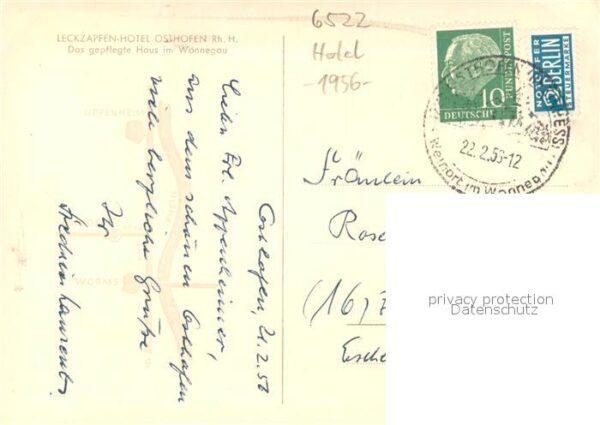 LECKZAPFEN-HOTEL OSTHOFEN Rh. H.
Das gepflegte Haus im Wonnegau
6522
Hotel
-1956-
10
DEUTSCHE
BUNDESPOST
NOTOPFER
2 BERLIN
STEUERMARKE
OSTHOFEN
22.2.56-12
Weinort im Wonnegau
OPPENHEIM
WORMS
Osthofen, 21.2.56
Liebes Frl. Oppenheimer,
aus dem schönen Osthofen
viele herzliche Grüße
Ihr
Fräulein
Rose
(16)
Esche
privacy protection
Datenschutz